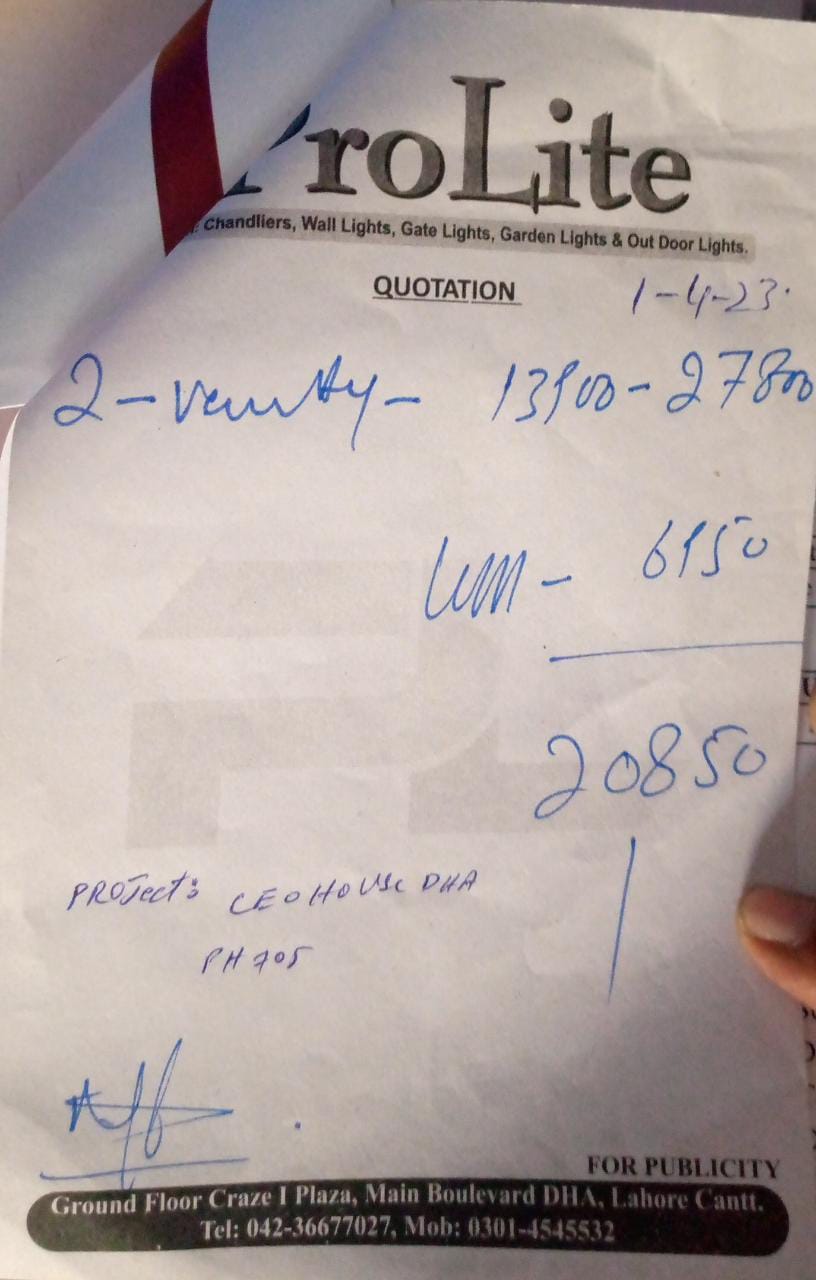 ProLite
Chandliers, Wall Lights, Gate Lights, Garden Lights & Out Door Lights.
QUOTATION
1-4-23
2 - vanity - 13900 - 27800
- 6950
20850
PROJect: CEO HOUSE DHA
PH 705
FOR PUBLICITY
Ground Floor Craze I Plaza, Main Boulevard DHA, Lahore Cantt.
Tel: 042-36677027, Mob: 0301-4545532